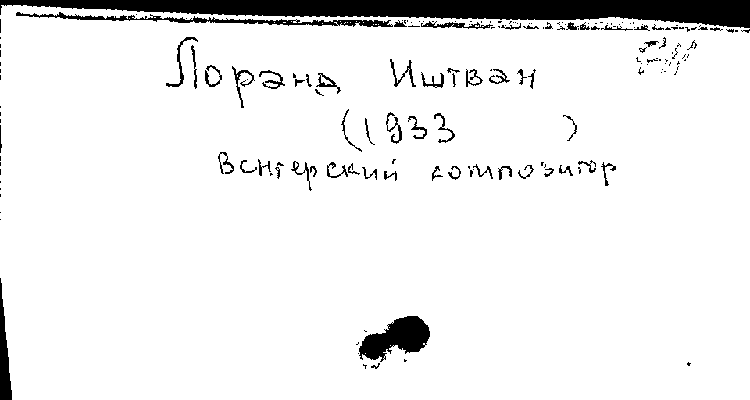 Лоранд Иштван
(1933 )
Венгерский композитор